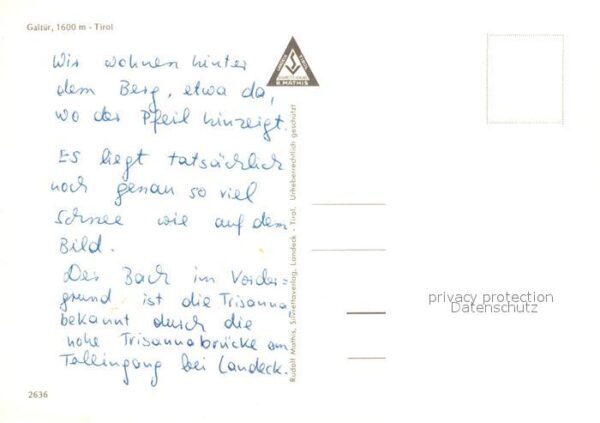 Galtür, 1600 m - Tirol
Wir wohnen hinter
dem Berg, etwa da,
wo der Pfeil hinzeigt.
Es liegt tatsächlich
noch genau so viel
Schnee wie auf dem
Bild.
Der Bach im Vorder-
grund ist die Trisanna
bekannt durch die
hohe Trisannabrücke am
Taleingang bei Landeck.
2636
R. MATHIS
Rudolf Mathis, Silvrettaverlag, Landeck - Tirol, Urheberrechtlich geschützt
privacy protection
Datenschutz